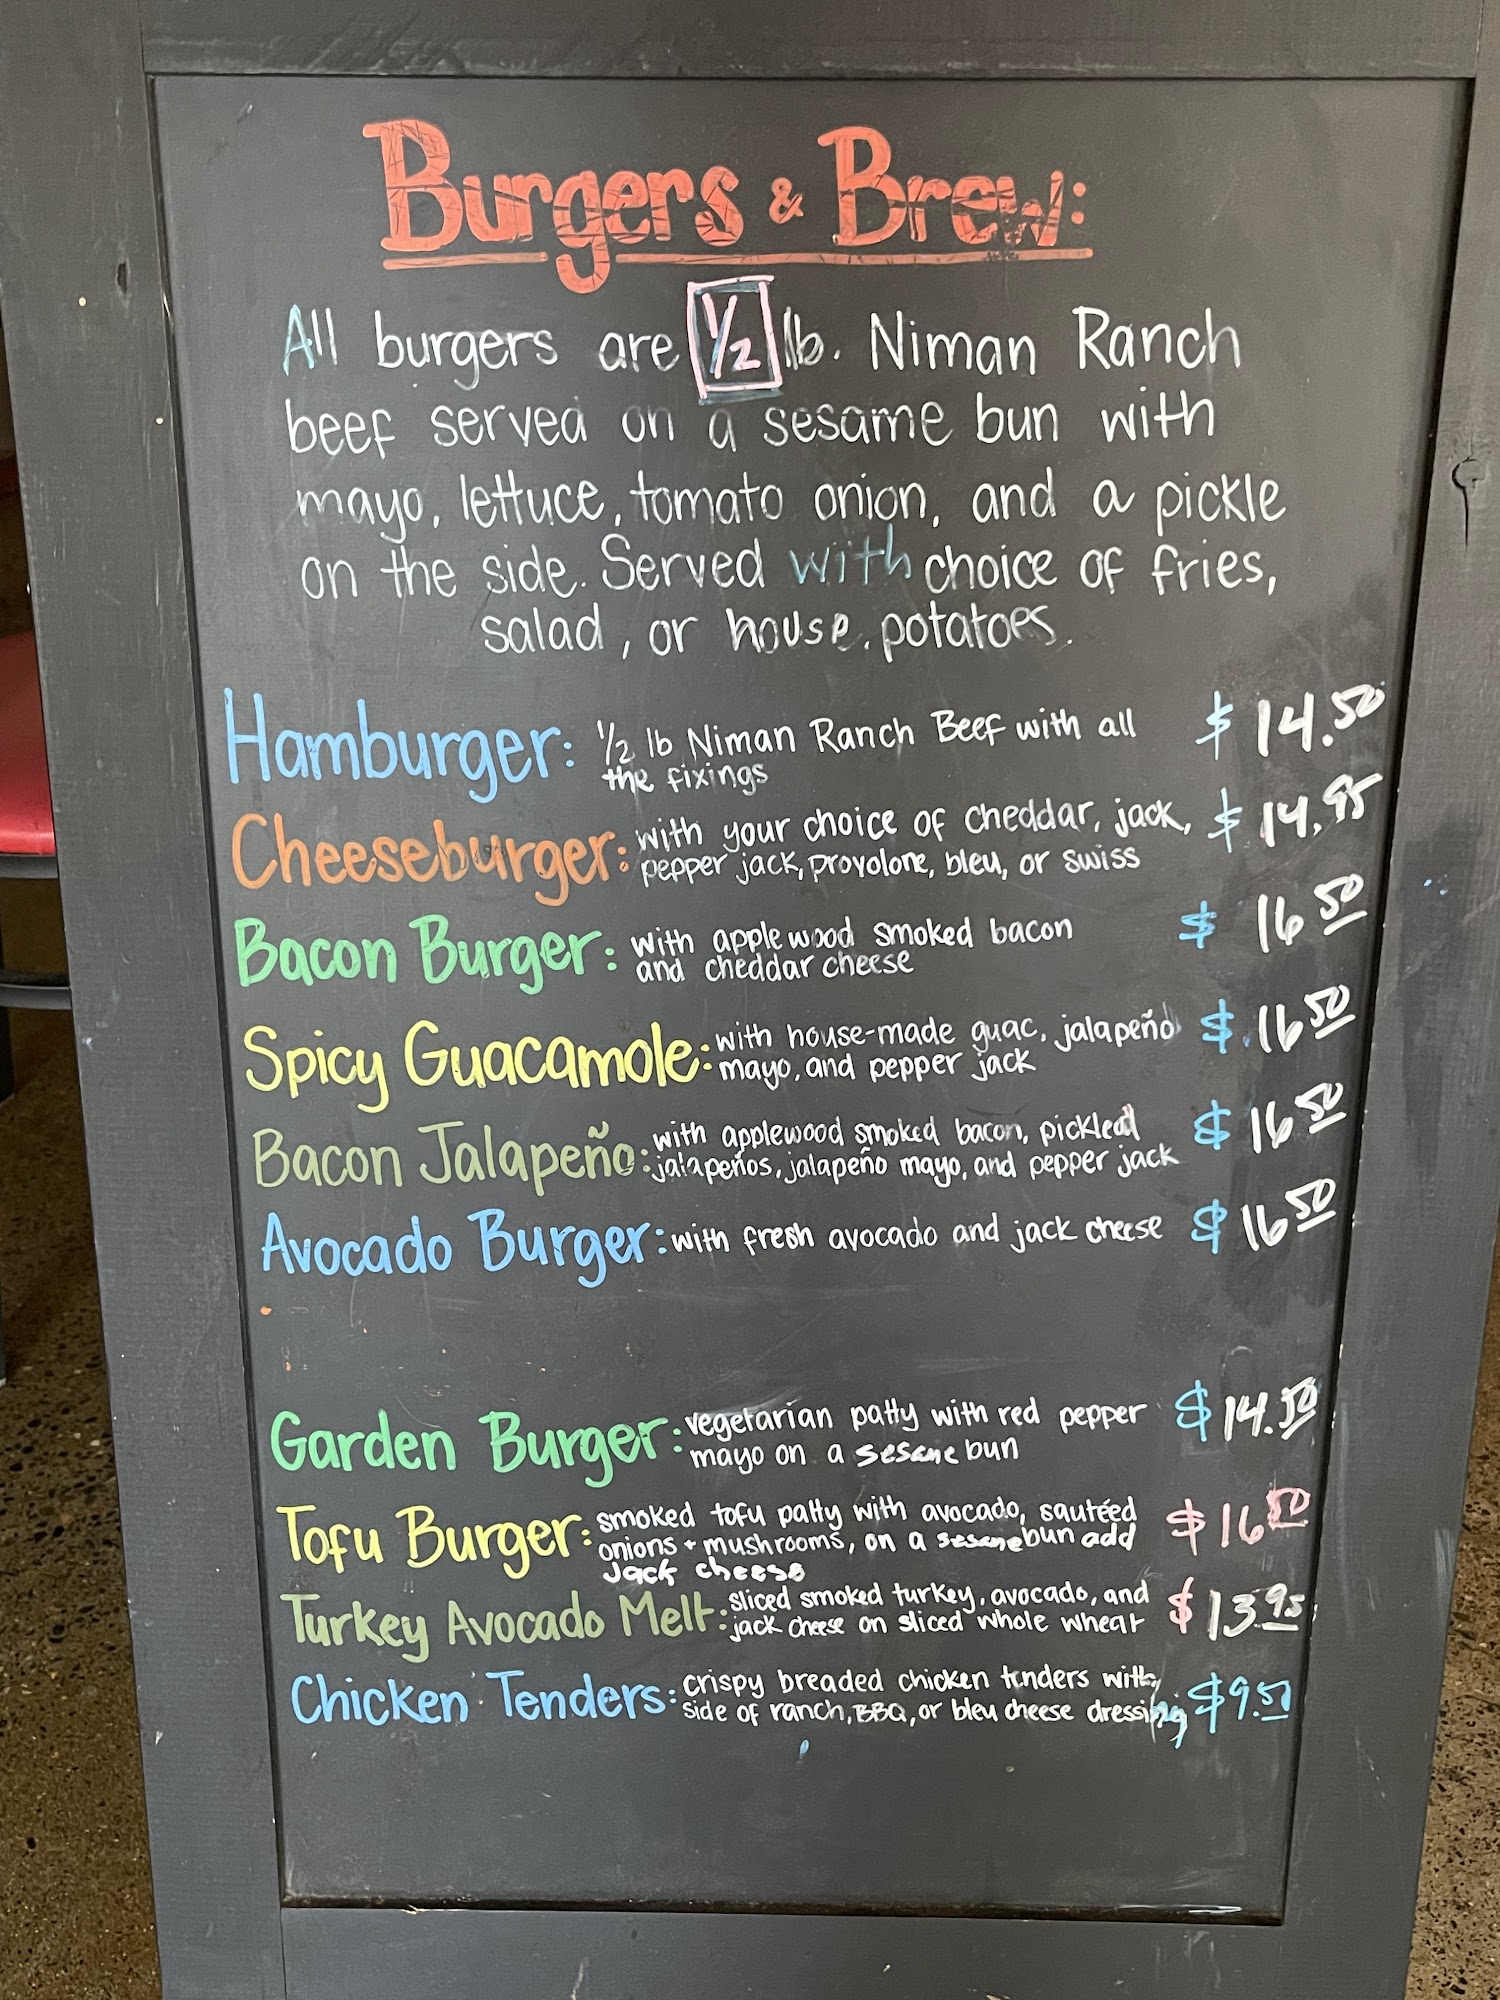 Burgers & Brew:
All burgers are 1/2 lb. Niman Ranch
beef served on a sesame bun with
mayo, lettuce, tomato onion, and a pickle
on the side. Served with choice of fries,
salad, or house. potatoes.
Hamburger: 1/2 lb Niman Ranch Beef with all $14.50
the fixings
Cheeseburger: with your choice of cheddar, jack, $14.95
pepper jack, provolone, bleu, or swiss
Bacon Burger: with applewood smoked bacon $16 50
and cheddar cheese
Spicy Guacamole: with house-made guac, jalapeño $16 50
mayo, and pepper jack
Bacon Jalapeño: with applewood smoked bacon, pickled $16 50
jalapeños, jalapeño mayo, and pepper jack
Avocado Burger: with fresh avocado and jack cheese $16 50
Garden Burger: vegetarian patty with red pepper $14.50
mayo on a sesame bun
Tofu Burger: smoked tofu patty with avocado, sautéed $16 50
onions + mushrooms, on a sesame bun add
Jack cheese
Turkey Avocado Melt: sliced smoked turkey, avocado, and $13 95
jack cheese on sliced whole wheat
Chicken Tenders: crispy breaded chicken tenders with $9.50
side of ranch, BBQ, or bleu cheese dressing